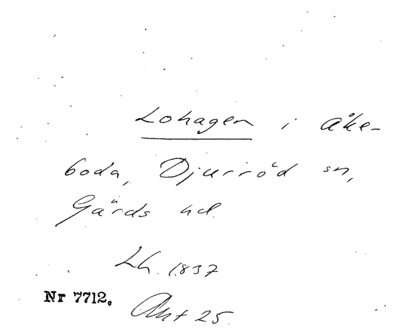 Lohagen i Åke-
boda, Djurröd sn,
Gärds hd.
Lh. 1837
Nr 7712.
Akt 25